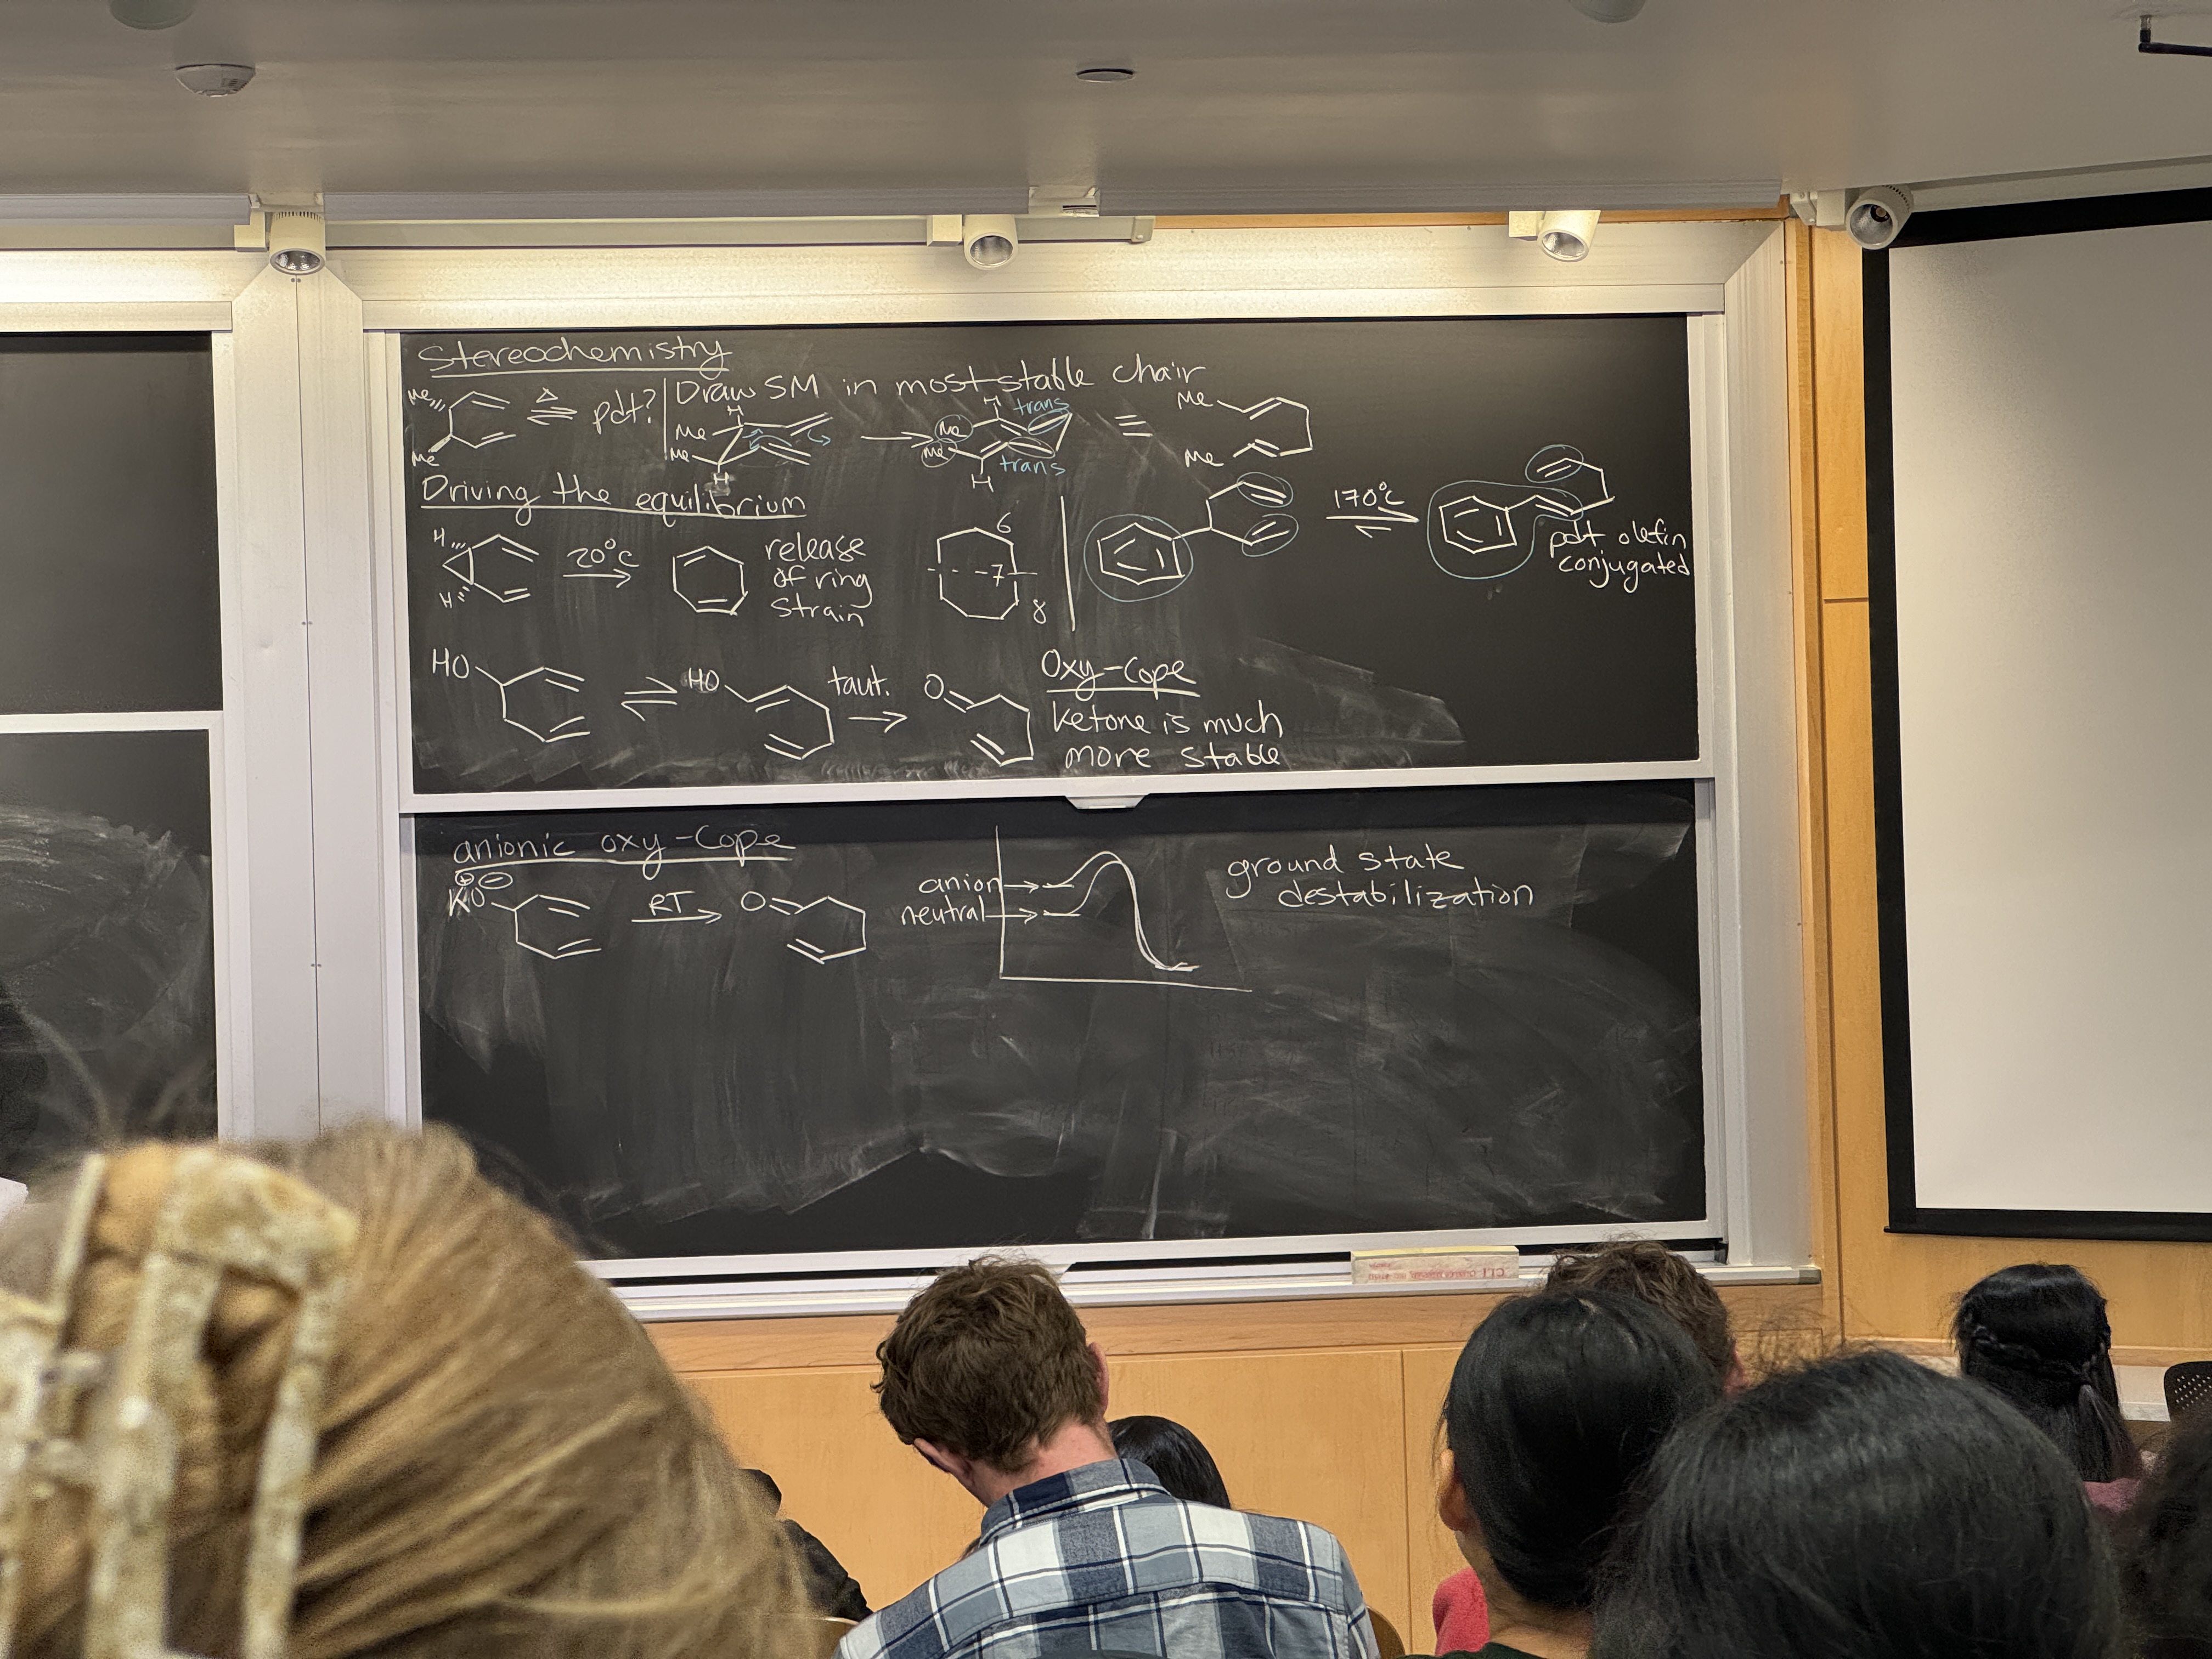 Stereochemistry
Me
Me
Δ
pdt?
Draw SM in most stable chair
Me
Me
H
H
Me
Me
H
H
trans
trans
≡
Me
Me
Driving the equilibrium
H
H
20°C
release
of ring
strain
6
7
8
170°C
pdt olefin
conjugated
HO
HO
taut.
O
Oxy-Cope
Ketone is much
more stable
anionic oxy-Cope
⊕ ⊖
KO
RT
O
anion
neutral
ground state
destabilization